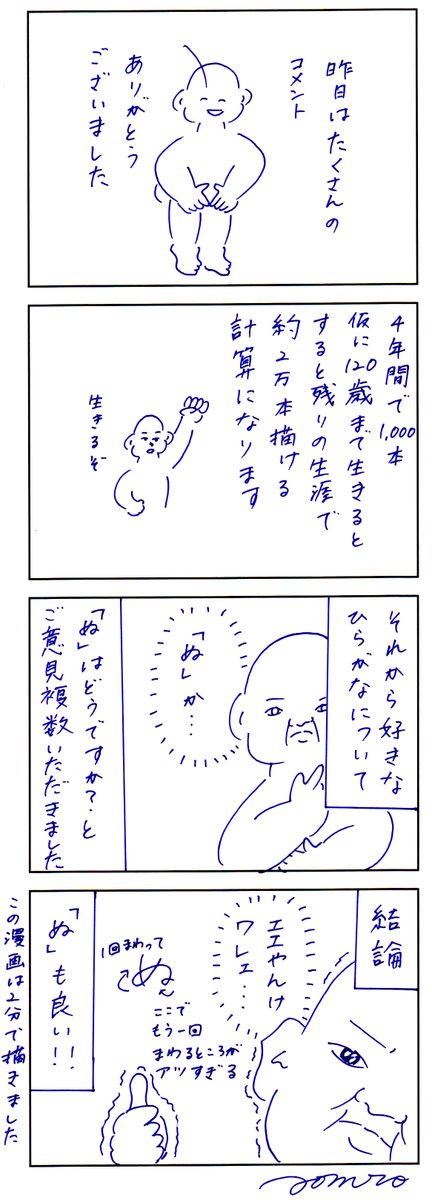 昨日はたくさんの
コメント
ありがとう
ございました
4年間で1,000本
仮に120歳まで生きると
すると残りの生涯で
約2万本描ける
計算になります
生きるぞ
それから好きな
ひらがなについて
「ぬ」か…
「ぬ」はどうですか？と
ご意見複数いただきました
結論
エエやんけ
ワレェ…
1回まわって
ぬ
ここで
もう一回
まわるところが
アツすぎる
「ぬ」も良い!!
この漫画は2分で描きました